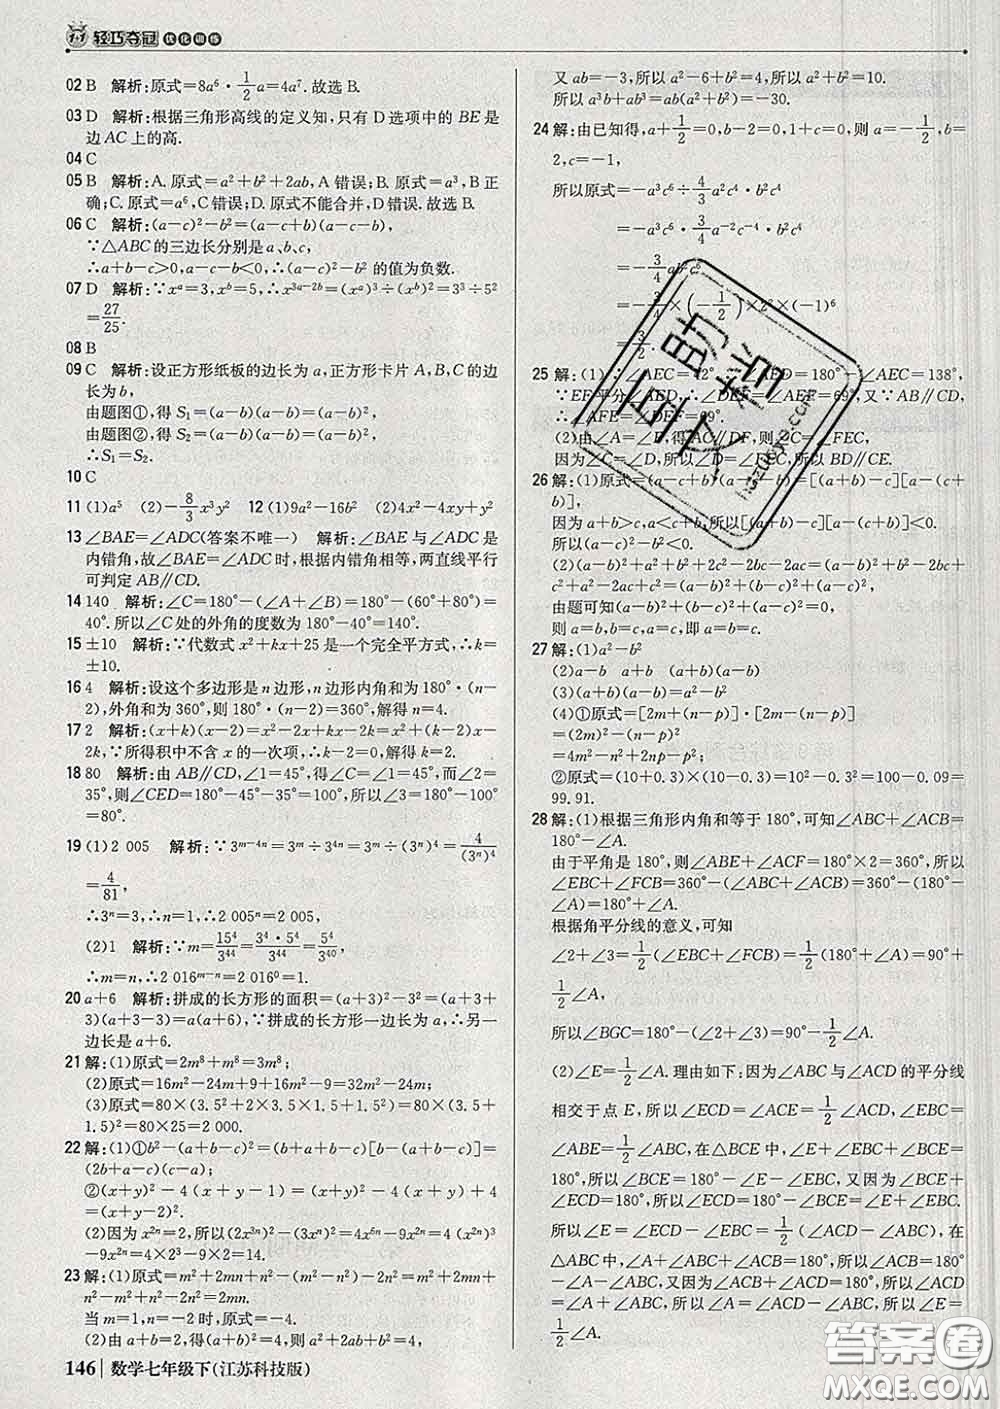 轻巧夺冠 优化训练
02 B 解析:原式=8a⁶·1/2a=4a⁷.故选B.
03 D 解析:根据三角形高线的定义知,只有D选项中的BE是
边AC上的高.
04 C
05 B 解析:A.原式=a²+b²+2ab,A错误;B.原式=a³,B正
确;C.原式=a⁶,C错误;D.原式不能合并,D错误.故选B.
06 C 解析:(a-c)²-b²=(a-c+b)(a-c-b),
∵△ABC的三边长分别是a、b、c,
∴a+b-c>0,a-c-b<0,∴(a-c)²-b²的值为负数.
07 D 解析:∵xᵃ=3,xᵇ=5,∴x³ᵃ⁻²ᵇ=(xᵃ)³÷(xᵇ)²=3³÷5²
=27/25.
08 B
09 C 解析:设正方形纸板的边长为a,正方形卡片A,B,C的边
长为b,
由题图①,得S₁=(a-b)(a-b)=(a-b)².
由题图②,得S₂=(a-b)(a-b)=(a-b)².
∴S₁=S₂.
10 C
11 (1)a⁵ (2)-8/3x³y² 12 (1)9a²-16b² (2)4x²-4xy+y²
13 ∠BAE=∠ADC(答案不唯一) 解析:∠BAE与∠ADC是
内错角,故∠BAE=∠ADC时,内错角相等,两直线平行
可判定AB∥CD.
14 140 解析:∠C=180°-(∠A+∠B)=180°-(60°+80°)=
40°.所以∠C处的外角的度数为180°-40°=140°.
15 ±10 解析:∵代数式x²+kx+25是一个完全平方式,∴k=
±10.
16 4 解析:设这个多边形是n边形,n边形内角和为180°·(n-
2),外角和为360°,则180°·(n-2)=360°,解得n=4.
17 2 解析:(x+k)(x-2)=x²-2x+kx-2k=x²+(k-2)x-
2k,∵所得积中不含x的一次项,∴k-2=0,解得k=2.
18 80 解析:由AB∥CD,∠1=45°,得∠C=∠1=45°,而∠2=
35°,则∠CED=180°-45°-35°=100°,所以∠3=180°-100°
=80°.
19 (1)2 005 解析:∵3ᵐ⁻⁴ⁿ=3ᵐ÷3⁴ⁿ=3ᵐ÷(3ⁿ)⁴=4/(3ⁿ)⁴
=4/81,
∴3ⁿ=3,∴n=1,∴2 005ⁿ=2 005.
(2)1 解析:∵m=15⁴/3⁴⁴=3⁴·5⁴/3⁴⁴=5⁴/3⁴⁰,
∴m=n,∴2 016ᵐ⁻ⁿ=2 016⁰=1.
20 a+6 解析:拼成的长方形的面积=(a+3)²-3²=(a+3+
3)(a+3-3)=a(a+6),∵拼成的长方形一边长为a,∴另一
边长是a+6.
21 解:(1)原式=2m⁸+m⁸=3m⁸;
(2)原式=16m²-24m+9+24m-16m²=9;
(3)原式=80×(3.5²+2×3.5×1.5+1.5²)=80×(3.5+
1.5)²=80×25=2 000.
22 解:(1)①b²-(a+b-c)²=(b+a+b-c)[b-(a+b-c)]=
(2b+a-c)(c-a);
②(x+y)²-4(x+y-1)=(x+y)²-4(x+y)+4
=(x+y-2)².
(2)因为x²ⁿ=2,所以(2x³ⁿ)²-(3xⁿ)²=4x⁶ⁿ-9x²ⁿ=4(x²ⁿ)³
-9x²ⁿ=4×2³-9×2=14.
23 解:(1)原式=m²+2mn+n²-(m²-2mn+n²)-2n²=4mn
-2n².
当m=1,n=-2时,原式=-4.
(2)由a+b=2,得(a+b)²=4,即a²+2ab+b²=4,
146 数学七年级下(江苏科技版)
又ab=-3,所以a²-6+b²=4,所以a²+b²=10.
所以a³b+ab³=ab(a²+b²)=-30.
24 解:由已知得,a+1/2=0,b-2=0,1+c=0,则a=-1/2,b=
2,c=-1.
所以原式=-a³c⁶÷4/3a²c⁴·b²c⁴
=-a³c⁶·3/4a⁻²c⁻⁴·b²c⁴
=-3/4ab²c⁶
=-3/4×(-1/2)×2²×(-1)⁶
=3/2.
25 解:(1)∵∠AEC=42°,∴∠AED=180°-∠AEC=138°,
∵EF平分∠AED,∴∠DEF=∠AEF=69°,又∵AB∥CD,
∴∠AFE=∠DEF=69°.
(2)由∠A=∠F,得AC∥DF,则∠C=∠FEC,
因为∠C=∠D,所以∠D=∠FEC,所以BD∥CE.
26 解:(1)原式=(a-c+b)(a-c-b)=[(a+b)-c][a-(c+
b)],
因为a+b>c,a<c+b,所以[(a+b)-c][a-(c+b)]<0.
所以(a-c)²-b²<0.
(2)2(a²+b²+c²-ab-bc-ac)=a²-2ab+b²+b²-2bc+
c²+a²-2ac+c²=(a-b)²+(b-c)²+(a-c)²;
由题可知(a-b)²+(b-c)²+(a-c)²=0,
则a=b,b=c,a=c,即a=b=c.
27 解:(1)a²-b²
(2)a-b a+b (a+b)(a-b)
(3)(a+b)(a-b)=a²-b²
(4)①原式=[2m+(n-p)]·[2m-(n-p)]
=(2m)²-(n-p)²
=4m²-n²+2np-p²;
②原式=(10+0.3)×(10-0.3)=10²-0.3²=100-0.09=
99.91.
28 解:(1)根据三角形内角和等于180°,可知∠ABC+∠ACB=
180°-∠A.
由于平角是180°,则∠ABE+∠ACF=180°×2=360°,所以
∠EBC+∠FCB=360°-(∠ABC+∠ACB)=360°-(180°-
∠A)=180°+∠A.
根据角平分线的意义,可知
∠2+∠3=1/2(∠EBC+∠FCB)=1/2(180°+∠A)=90°+
1/2∠A,
所以∠BGC=180°-(∠2+∠3)=90°-1/2∠A.
(2)∠E=1/2∠A.理由如下:因为∠ABC与∠ACD的平分线
相交于点E,所以∠ECD=∠ACE=1/2∠ACD,∠EBC=
∠ABE=1/2∠ABC,在△BCE中,∠E+∠EBC+∠BCE=
180°,所以∠BCE=180°-∠E-∠EBC,又因为∠BCE+
∠ECD=180°,所以∠ECD=180°-∠BCE=∠E+∠EBC.
所以∠E=∠ECD-∠EBC=1/2(∠ACD-∠ABC),在
△ABC中,∠A+∠ABC+∠ACB=180°,所以∠ACB=180°
-∠A-∠ABC,又因为∠ACD+∠ACB=180°,所以∠ACD
=∠A+∠ABC,所以∠E=1/2(∠A+∠ABC-∠ABC)
=1/2∠A.
答案圈
MXQE.COM